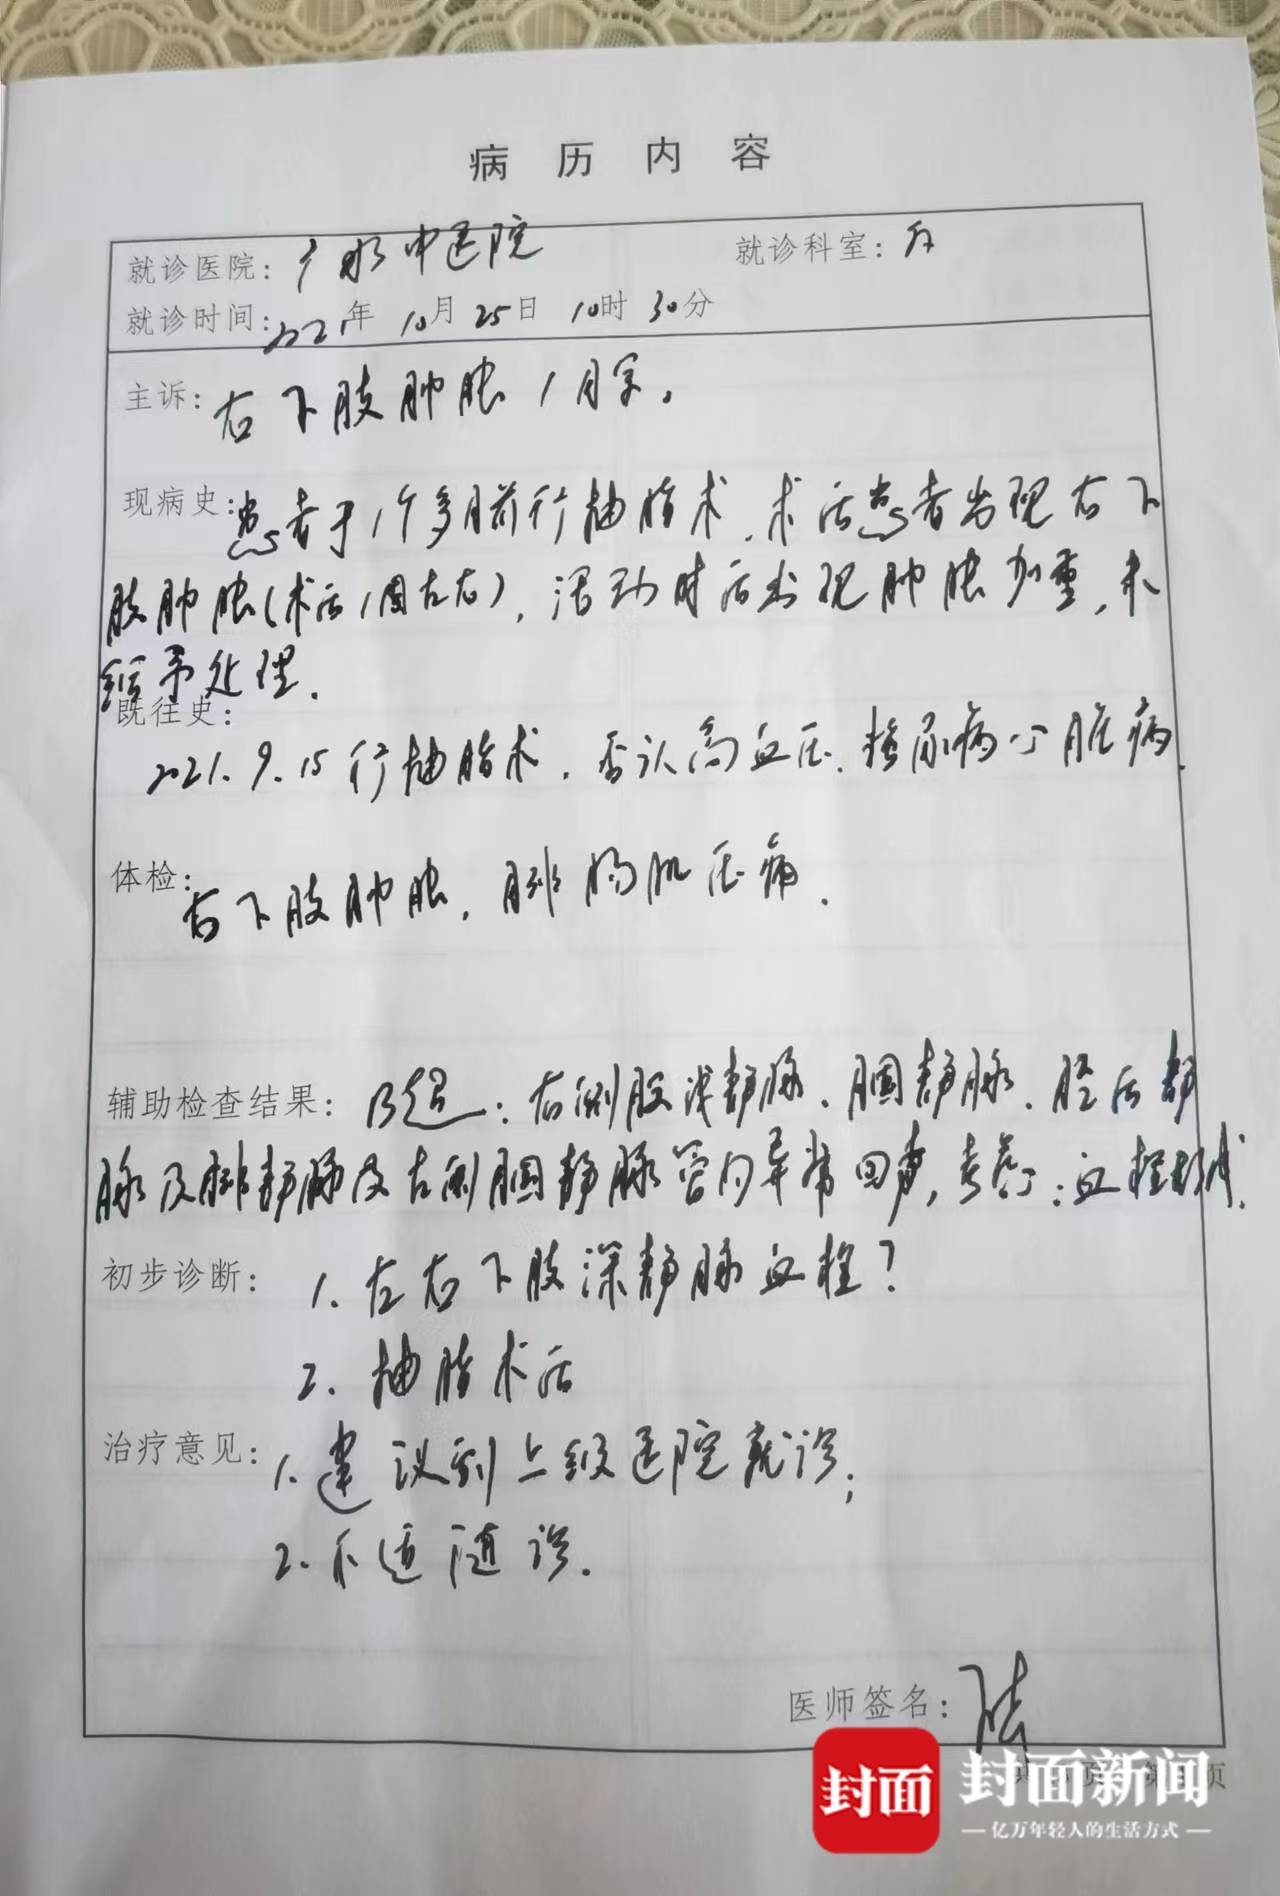 病历内容
就诊医院：广水中医院 就诊科室：
就诊时间：2021年 10月 25日 10时 30分
主诉：右下肢肿胀1月余。
现病史：患者于1个多月前行抽脂术，术后患者出现右下
肢肿胀（术后1周左右），活动时后出现肿胀加重，未
给予处理．
既往史：
2021.9.15行抽脂术．否认高血压、糖尿病、心脏病．
体检：右下肢肿胀，腓肠肌压痛．
辅助检查结果：B超：右侧股浅静脉、腘静脉、胫后静
脉及腓静脉及左侧腘静脉管内异常回声，考虑：血栓形成．
初步诊断：1.左右下肢深静脉血栓？
2.抽脂术后
治疗意见：1.建议到上级医院就诊；
2.不适随诊．
医师签名：陆
页 第 页
封面 封面新闻
亿万年轻人的生活方式